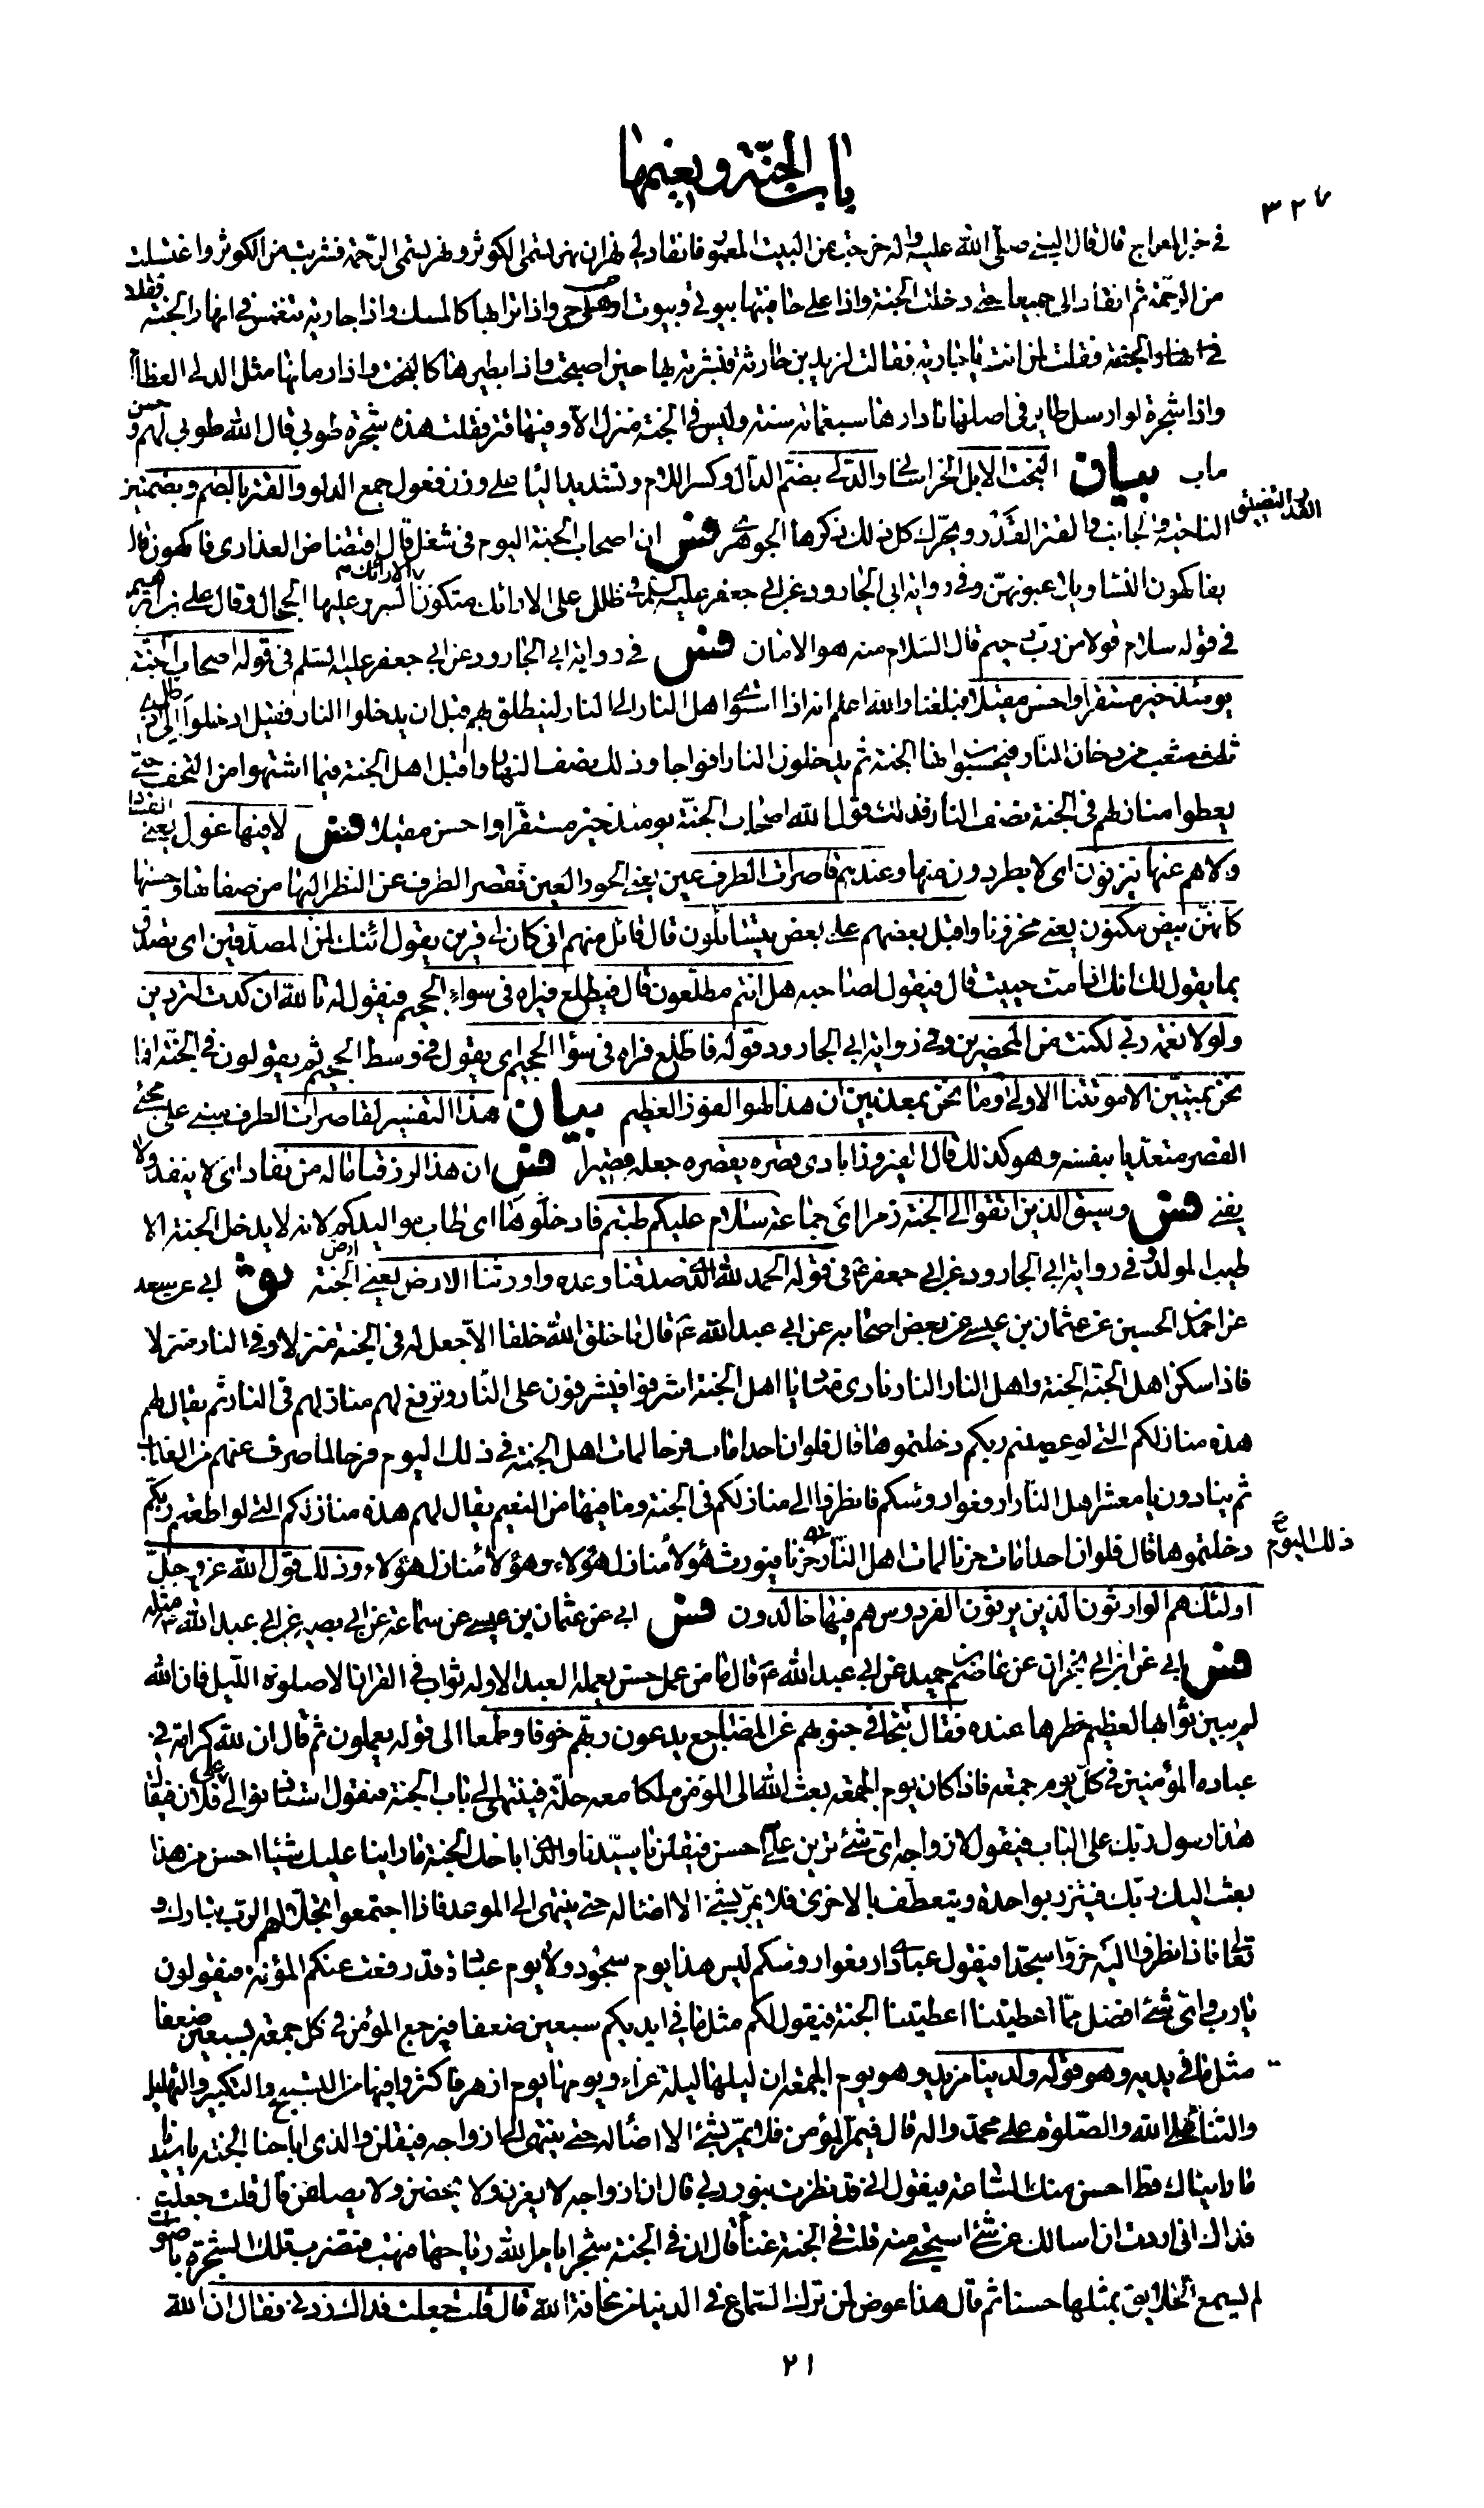 باب الجنّة ونعيمها
٣٢٧
في خبر المعراج قال قال النبي صلّى الله عليه واله خرجت من البيت المعمور فانقاد لي نهران نهر يسمى الكوثر ونهر يسمى الرّحمة فشربت من الكوثر واغتسلت
من الرحمة ثم انقادا لي جميعا حتى دخلت الجنة واذا على حافيتها بيوتي وبيوت اهلي واذا ترابها كالمسك واذا جارية تنغمس في انهار الجنة فقلت
في انهار الجنة فقلت لمن انت يا جارية فقالت لزيد بن حارثة فبشرته بها حين اصبحت واذا بطيرها كالبخت واذا رمانها مثل الدلي العظام
واذا شجرة لو ارسل طاير في اصلها ما دارها سبعمائة سنة وليس في الجنة منزل الاّ وفيها قتر فقلت هذه شجرة طوبى قال الله طوبى لهم وحسن
ماب بيان البخت الابل الخراساني والدلي بضم الدال وكسر اللام وتشديد اليا على وزن فعول جمع الدلو والقتر بالضم وبضمتين
الناحية والجانب والقتر القدر ويحرك كل ذلك ذكرها الجوهري فس ان اصحاب الجنة اليوم في شغل قال افتضاض العذارى فاكهون قال
القدر التضييق
يفاكهون النساء ويلاعبونهن وفي رواية ابي الجارود عن ابي جعفر عليه السلم في ظلال على الارائك متكئون الارائك السرر عليها الحجال وقال علي بن ابرهيم
في قوله سلام قولا من رب رحيم قال السلام منه هو الامان فس في رواية ابي الجارود عن ابي جعفر عليه السلم في قوله اصحاب الجنة
يومئذ خير مستقرا واحسن مقيلا فبلغنا والله اعلم انه اذا استوى اهل النار الى النار لينطلق بهم قبل ان يدخلوا النار فقيل ادخلوا الى ظل ذي
ثلث شعب من دخان النار فيحسبون انها الجنة ثم يدخلون النار افواجا وذلك نصف النهار واقبل اهل الجنة فيما اشتهوا من التحف حتى
يعطوا منازلهم في الجنة نصف النهار فذلك قول الله اصحاب الجنة يومئذ خير مستقرا واحسن مقيلا فس لا فيها غول يعني الفساد
ولا هم عنها ينزفون اى لا يطردون منها وعندهم قاصرات الطرف عين يعني الحور العين تقصر الطرف عن النظر اليها من صفائها وحسنها
كانهن بيض مكنون يعني مخزون فاقبل بعضهم على بعض يتسائلون قال قائل منهم اني كان لي قرين يقول ائنك لمن المصدقين اى تصدق
بما يقول لك انك اذا مت حييت قال فيقول لصاحبه هل انتم مطلعون قال فيطلع فيراه في سواء الجحيم فيقول له تالله ان كدت لتردين
ولولا نعمة ربي لكنت من المحضرين وفي رواية ابي الجارود قوله فاطلع فراه في سواء الجحيم اى يقول في وسط الجحيم ثم يقولون في الجنة افما
نحن بميتين الا موتتنا الاولى وما نحن بمعذبين ان هذا لهو الفوز العظيم بيان هذا التفسير لقاصرات الطرف مبني على مجئ
القصر متعديا بنفسه وهو كذلك قال الفيروزابادي قصره يقصره جعله قصيرا فس ان هذا لرزقنا ما له من نفاد اى لا ينفد ولا
يفنى فس وسيق الذين اتقوا الى الجنة زمرا اى جماعة سلام عليكم طبتم فادخلوها اى طاب مواليدكم لانه لا يدخل الجنة الا
طيب المولد وفي رواية ابي الجارود عن ابي جعفر ع في قوله الحمد لله الذي صدقنا وعده واورثنا الارض يعني ارض الجنة ثو ابي عن سعد
عن احمد عن الحسين عن عثمان بن عيسى عن بعض اصحابه عن ابي عبد الله ع قال ما خلق الله خلقا الا جعل له في الجنة منزلا وفي النار منزلا
فاذا سكن اهل الجنة الجنة واهل النار النار نادى مناد يا اهل الجنة اشرفوا فيشرفون على النار وترفع لهم منازلهم في النار ثم يقال لهم
هذه منازلكم التي لو عصيتم ربكم دخلتموها قال فلو ان احدا مات فرحا لمات اهل الجنة في ذلك اليوم فرحا لما صرف عنهم من العذاب
ثم ينادون يا معشر اهل النار ارفعوا رؤسكم فانظروا الى منازلكم في الجنة وما فيها من النعيم يقال لهم هذه منازلكم التي لو اطعتم ربكم
دخلتموها قال فلو ان احدا مات حزنا لمات اهل النار حزنا فيورث هؤلاء منازل هؤلاء وهؤلاء منازل هؤلاء وذلك قول الله عز وجل
ذلك اليوم
اولئك هم الوارثون الذين يرثون الفردوس هم فيها خالدون فس ابي عن عثمان بن عيسى عن سماعة عن ابي بصير عن ابي عبد الله ع مثله
فس ابي عن ابن ابي نجران عن عاصم بن حميد عن ابي عبد الله ع قال ما من عمل حسن يعمله العبد الا وله ثواب في القران الا صلوة الليل فان الله
لم يبين ثوابها لعظيم خطرها عنده فقال تتجافى جنوبهم عن المضاجع يدعون ربهم خوفا وطمعا الى قوله يعملون ثم قال ان لله كرامة في
عباده المؤمنين في كل يوم جمعة فاذا كان يوم الجمعة بعث الله الى المؤمن ملكا معه حلة فينتهي الى باب الجنة فيقول استاذنوا لي على فلان فيقال
هذا رسول ربك على الباب فيقول لازواجه اى شئ ترين علي احسن فيقلن يا سيدنا والذي اباحك الجنة ما راينا عليك شيئا احسن من هذا
بعث اليك ربك فيتزر بواحدة ويتعطف بالاخرى فلا يمر بشئ الا اضاء له حتى ينتهي الى الموعد فاذا اجتمعوا تجلى لهم الرب تبارك و
تعالى فاذا نظروا اليه خروا سجدا فيقول عبادي ارفعوا رؤسكم ليس هذا يوم سجود ولا يوم عبادة قد رفعت عنكم المؤنة فيقولون
يا رب واى شئ افضل مما اعطيتنا اعطيتنا الجنة فيقول لكم مثل ما في ايديكم سبعين ضعفا فيرجع المؤمن في كل جمعة بسبعين ضعفا
مثل ما في يديه وهو قوله ولدينا مزيد وهو يوم الجمعة ان ليلها ليلة غراء ويومها يوم ازهر فاكثروا فيها من التسبيح والتكبير والتهليل
والثناء على الله والصلوة على محمد واله قال فيمر المؤمن فلا يمر بشئ الا اضاء له حتى ينتهي الى ازواجه فيقلن والذي اباحنا الجنة يا سيدنا
ما رايناك قط احسن منك الساعة فيقول اني قد نظرت بنور ربي قال ان ازواجه لا يغرن ولا يحضن ولا يصلفن قال قلت جعلت
فداك اني اردت ان اسالك عن شئ استحيي منه قلت في الجنة غناء قال ان في الجنة شجرا يامر الله رياحها فتهب فتضرب تلك الشجرة باصوات
لم يسمع الخلايق بمثلها حسنا ثم قال هذا عوض لمن ترك السماع في الدنيا من مخافة الله قال قلت جعلت فداك زدني فقال ان الله
٢١